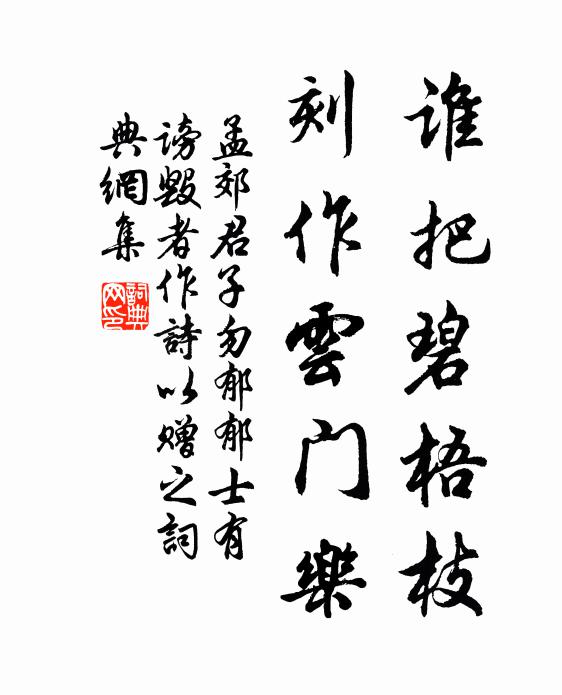 谁把碧梧枝
刻作雲门樂
孟郊君子勿郁郁士有
谤毁者作詩以赠之詞
典網集
詞典
网印